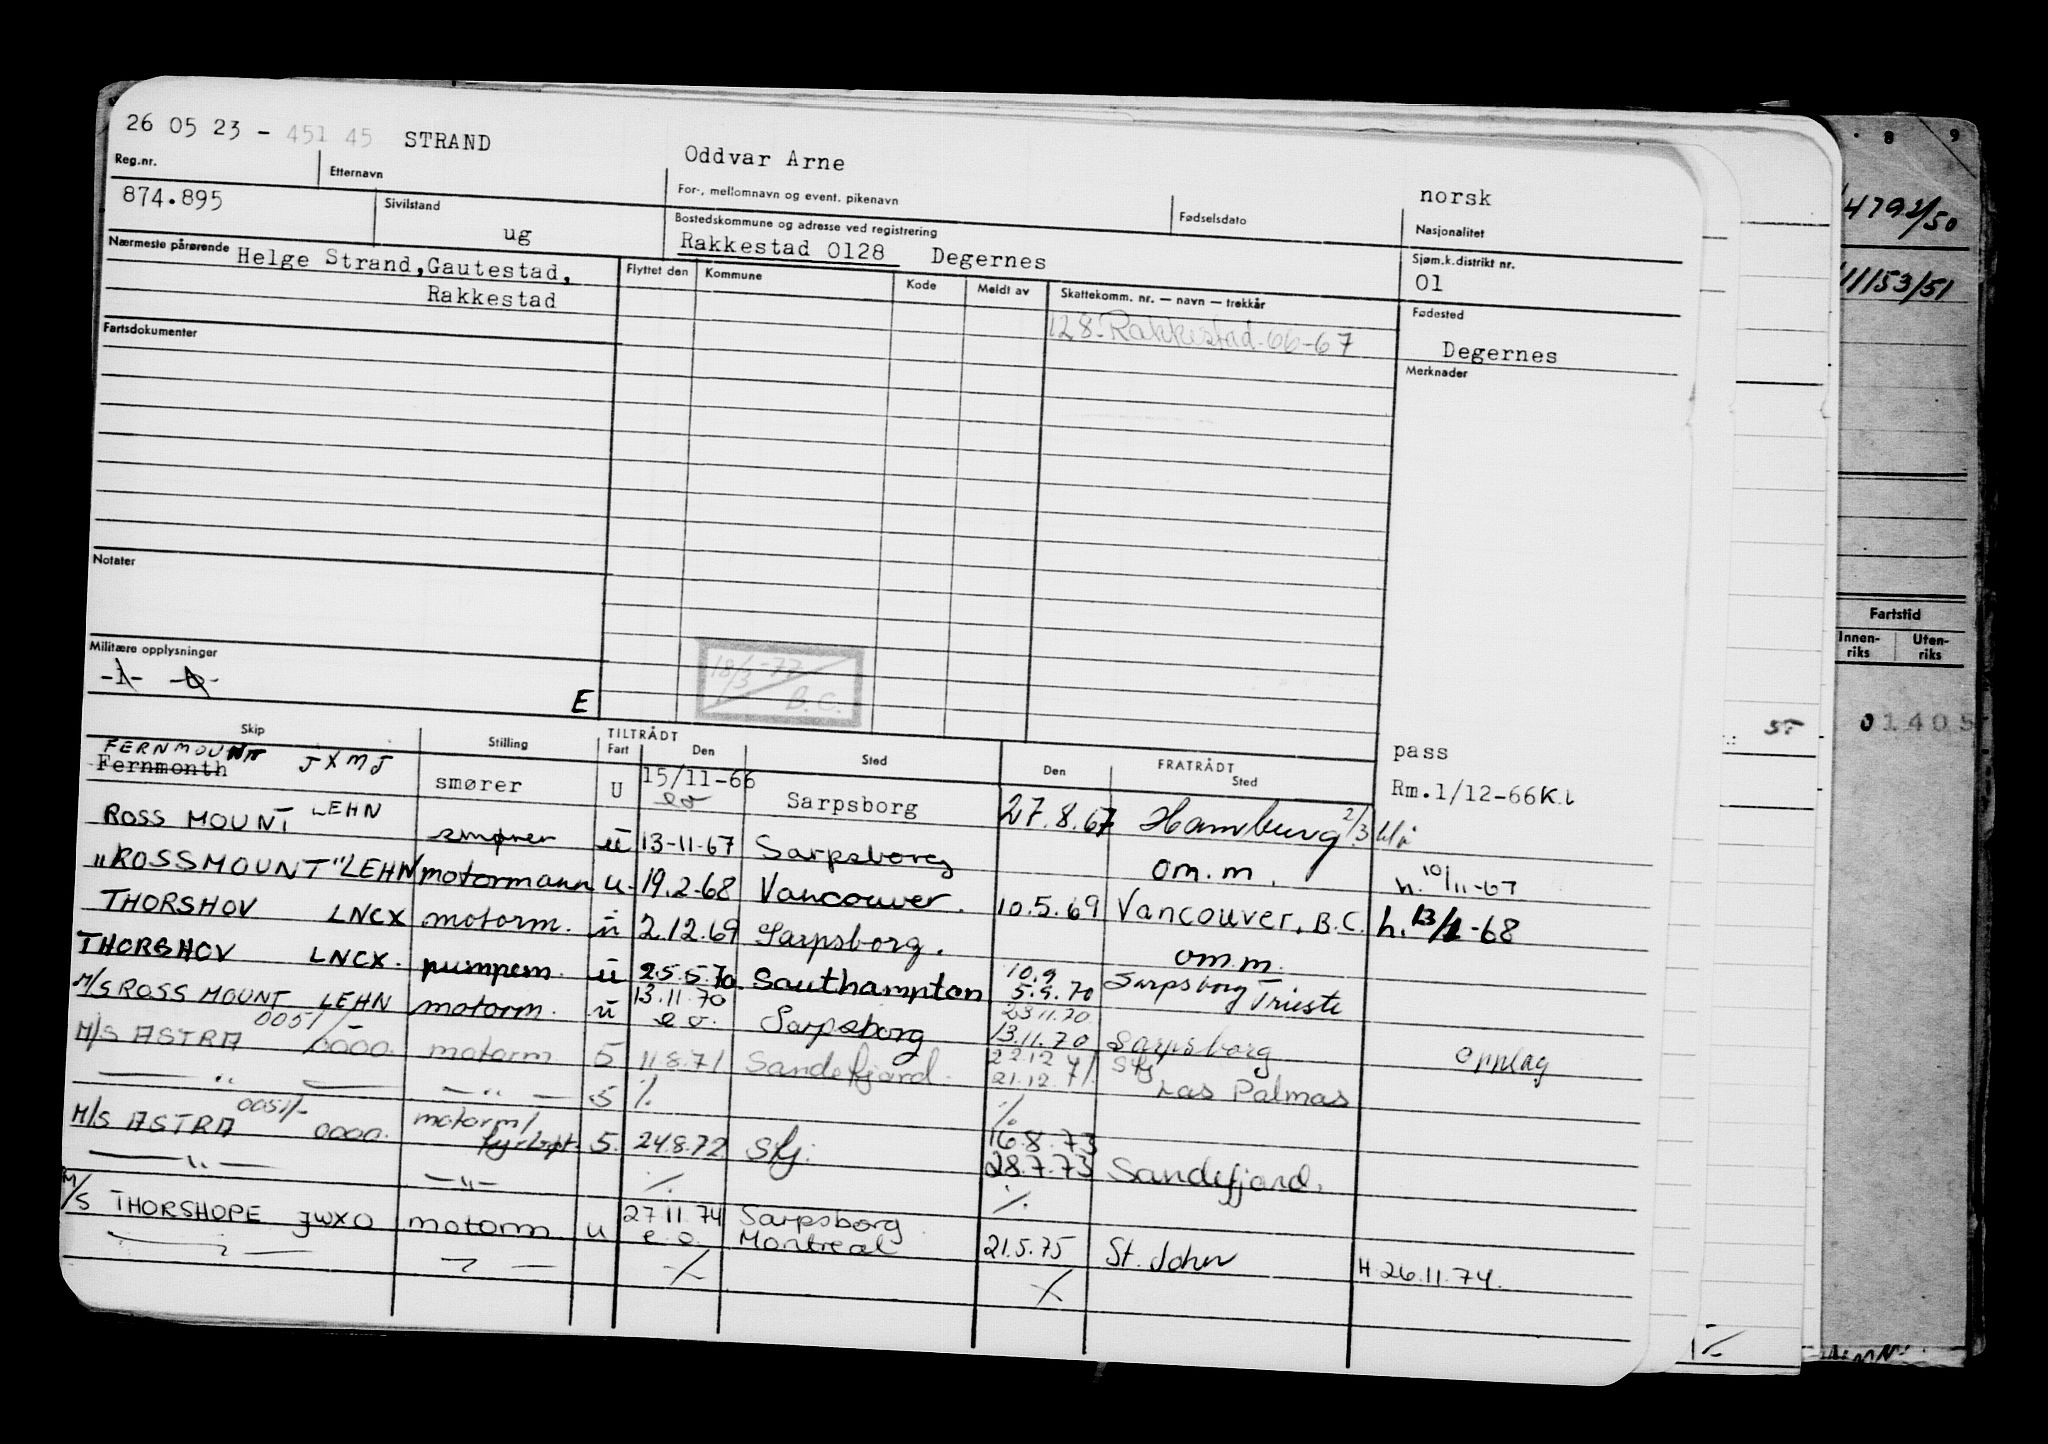 26 05 23 - 451 45 STRAND Oddvar Arne norsk
Reg.nr. Etternavn For-, mellomnavn og event. pikenavn Fødselsdato Nasjonalitet
874.895 ug Rakkestad 0128 Degernes 01
Sivilstand Bostedskommune og adresse ved registrering Sjøm.k.distrikt nr.
Nærmeste pårørende Helge Strand, Gautestad,
Rakkestad
Flyttet den Kommune Kode Meldt av Skattekomm. nr. — navn — trekkår Fødested
128-Rakkestad-66-67 Degernes
Fartsdokumenter Merknader
Notater
Militære opplysninger
-1- -0-
E
18/3-77
B.C.
Skip Stilling TILTRÅDT Fart Den Sted FRATRÅDT Den Sted
pass
FERNMOUNT JXMJ
Fernmonth smører U 15/11-66 Sarpsborg 27.8.67 Hamburg Rm.1/12-66
ROSS MOUNT LEHN smører ü 13-11-67 Sarpsborg om.m. h. 10/11-67
"ROSSMOUNT" LEHN motormann u. 19.2-68 Vancouver. 10.5.69 Vancouver, B.C. h. 13/2-68
THORSHOV LNCX motorm. ü 2.12.69 Sarpsborg. om.m.
THORSHOV LNCX. pumpem. ü 25.5.70 Southampton 10.9 5.9.70 Sarpsborg Trieste
M/S ROSS MOUNT LEHN motorm. ü 13.11.70 e.o. Sarpsborg 23.11.70 13.11.70 Sarpsborg Opplag
M/S ASTRA 0051/- 0000. motorm 5 11.8.71 Sandefjord. 22.12.71 21.12.71. Sfj Las Palmas
— " — — " — 5 % %
M/S ASTRA 0051/- 0000. motorm/ 5. 24.8.72 Sfj. 16.8.73 28.7.73 Sandefjord.
— " — — " — % %
M/S THORSHOPE JWXO motorm u 27.11.74 e.o. Sarpsborg Montreal 21.5.75 St. John H 26.11.74.
8 9
4792/50
11153/51
Fartstid
Innen-riks Uten-riks
01405